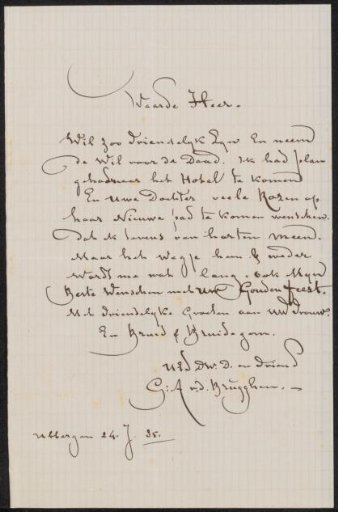 Waarde Heer.
Wil zoo vriendelyk Zyn En neem
de Wil voor de Daad. Ik had plan
geheel naar het Hotel te komen
En Uwe Dochter veele Rozen op
haar Nieuwe pad te komen wenschen.
dat ik tevens van harten meen.
Maar het wegje heen & weder
Wordt me wat lang. ook Myn
beste Wenschen met Uw Gouden feest.
Met vriendelyke Groeten aan Uw Vrouw.
En Bruid & Bruidegom.
UEd Dw. D. en Vriend
G. A. v. d. Brugghen. -
Ubbergen 24. J 85.